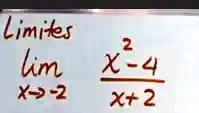 Limites
lim x²-4
x→-2 x+2